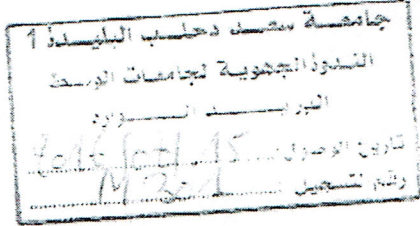 جامعة سعد دحلب البليدة 1
الندوة الجهوية لجامعات الوسط
البريد الوارد
تاريخ الوصول
رقم تسجيل